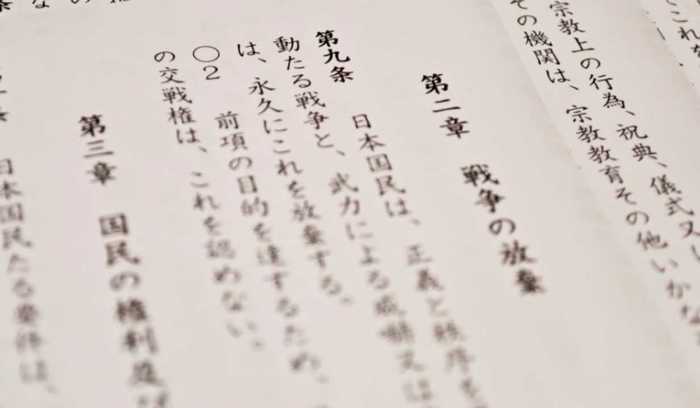 その機関は、宗教教育その他いかな
宗教上の行為、祝典、儀式又は
第二章　戦争の放棄
第九条　日本国民は、正義と秩序を
動たる戦争と、武力による威嚇又は
は、永久にこれを放棄する。
○2　前項の目的を達するため、
の交戦権は、これを認めない。
第三章　国民の権利及び
日本国民たる要件は、